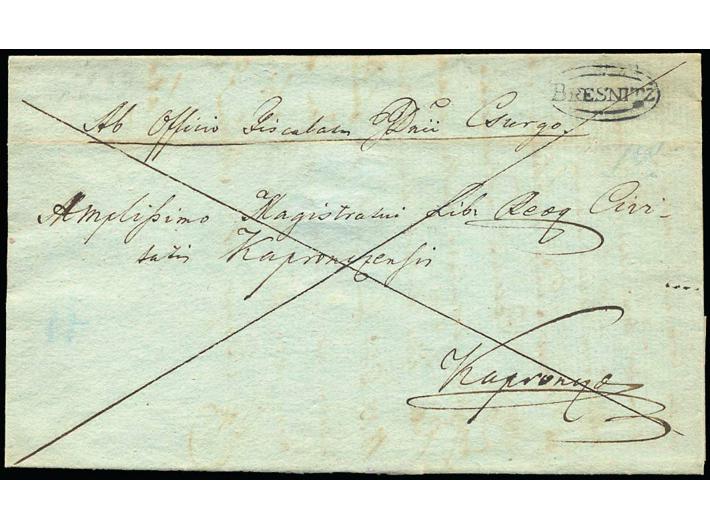 BRESNITZ
Ab Officio Fiscalatus Dnii Csurgo
Amplissimo Magistratui Lib. Reaeq Civi-
tatis Kapronczensis
Kaproncza